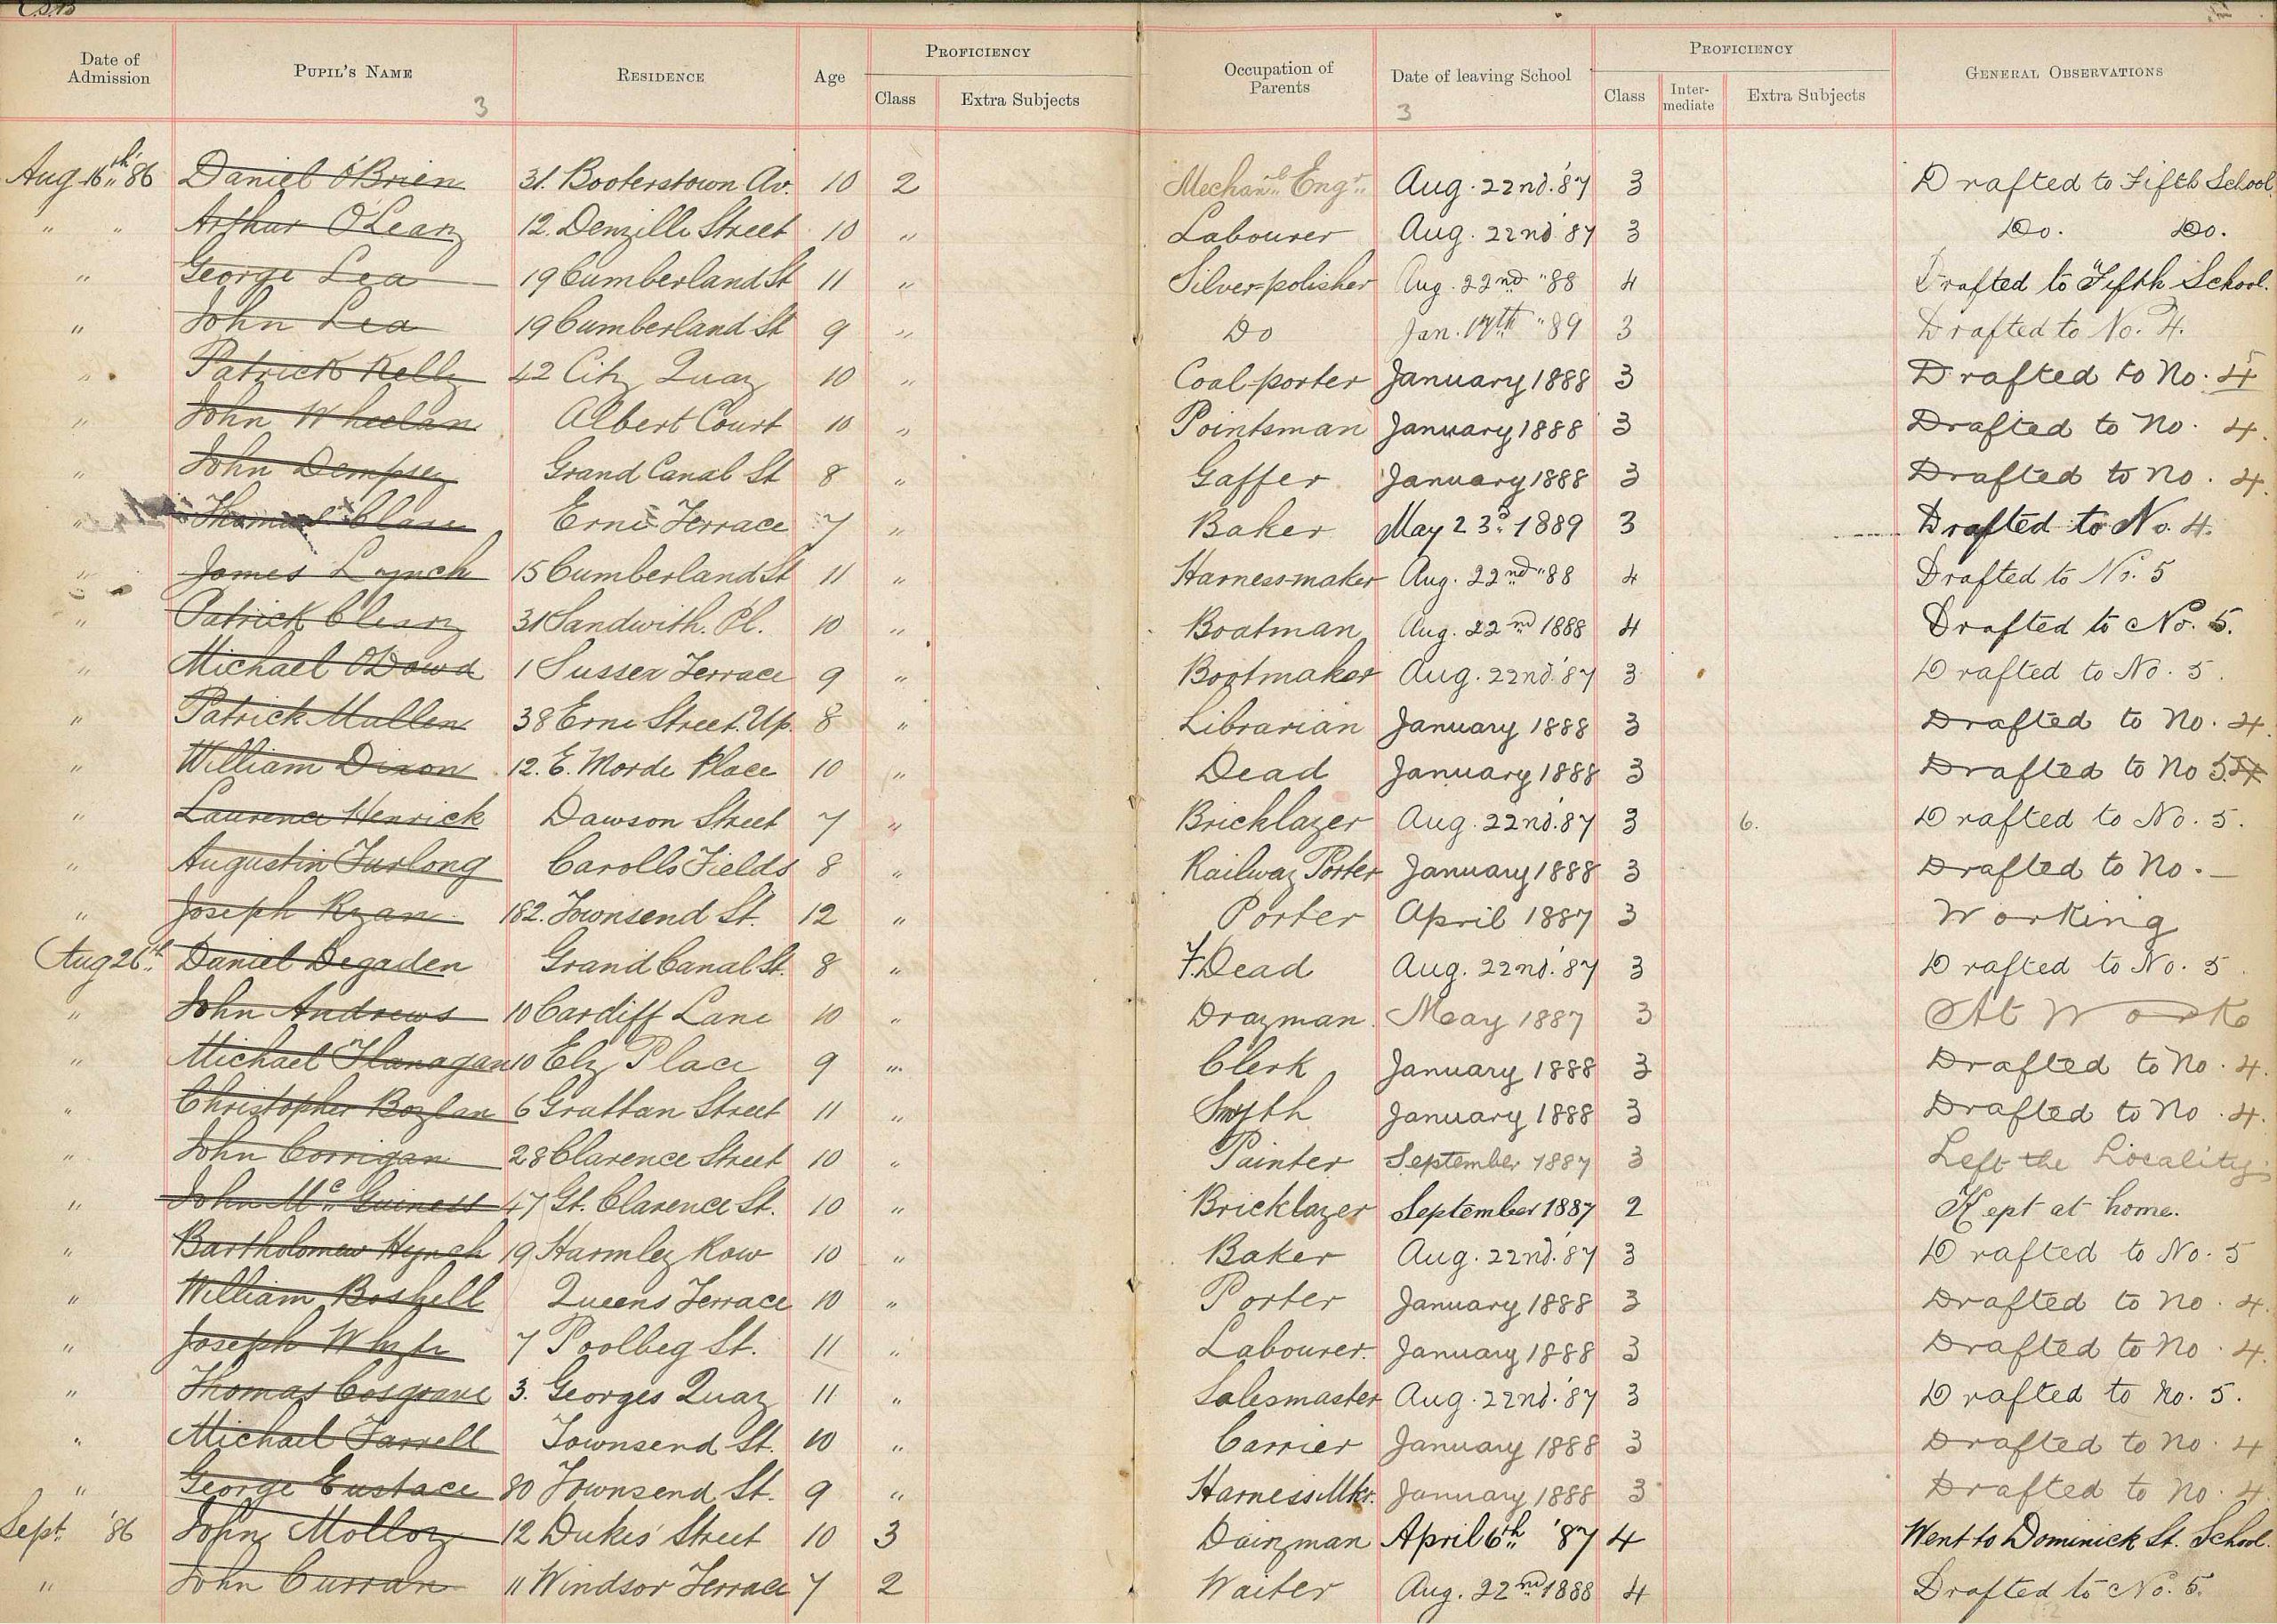 Date of Admission Pupil's Name Residence Age Proficiency Class Extra Subjects Occupation of Parents Date of leaving School Proficiency Class Inter-mediate Extra Subjects General Observations
3 3
Aug 16th '86 Daniel O'Brien 31. Booterstown Av. 10 2 Mechanl Engr. Aug. 22nd. '87 3 Drafted to Fifth School.
" " Arthur O'Leary 12. Denzille Street 10 " Labourer Aug. 22nd '87 3 Do. Do.
" George Lea 19 Cumberland St 11 " Silver-polisher Aug. 22nd "88 4 Drafted to Fifth School.
" John Lea 19 Cumberland St. 9 " Do Jan. 17th "89 3 Drafted to No. 4.
" Patrick Kelly 42 City Quay 10 " Coal-porter January 1888 3 Drafted to No. 4 5
" John Wheelan Albert Court 10 " Pointsman January 1888 3 Drafted to No. 4.
" John Dempsey Grand Canal St 8 " Gaffer January 1888 3 Drafted to No. 4.
" Thomas Erne Terrace 7 " Baker May 23d. 1889 3 Drafted to No. 4.
" James Lynch 15 Cumberland St 11 " Harness-maker Aug. 22nd "88 4 Drafted to No. 5
" Patrick Cleary 31 Sandwith. Pl. 10 " Boatman Aug. 22nd 1888 4 Drafted to No. 5.
" Michael O'Dowd 1 Sussex Terrace 9 " Bootmaker Aug. 22nd. '87 3 Drafted to No. 5.
" Patrick Mullen 38 Erne Street. Up. 8 " Librarian January 1888 3 Drafted to No. 4.
" William Dixon 12. E. Morde Place 10 " Dead January 1888 3 Drafted to No 5. 4
" Laurence Henrick Dawson Street 7 " Bricklayer Aug. 22nd. '87 3 6. Drafted to No. 5.
" Augustin Furlong Carolls Fields 8 " Railway Porter January 1888 3 Drafted to No. —
" Joseph Ryan 182. Townsend St. 12 " Porter April 1887 3 Working
Aug 26th. Daniel Degaden Grand Canal St. 8 " F. Dead Aug. 22nd. '87 3 Drafted to No. 5.
" John Andrews 10 Cardiff Lane 10 " Drayman. May 1887 3 At Work
" Michael Flanagan 10 Ely Place 9 " Clerk January 1888 3 Drafted to No. 4.
" Christopher Boylan 6 Grattan Street 11 " Smyth January 1888 3 Drafted to No. 4.
" John Corrigan 28 Clarence Street 10 " Painter September 1887 3 Left the Locality.
" John Mc Guiness 47 Gt. Clarence St. 10 " Bricklayer September 1887 2 Kept at home.
" Bartholomew Hynch 19 Harmley Row 10 " Baker Aug. 22nd. '87 3 Drafted to No. 5
" William Boshell Queens Terrace 10 " Porter January 1888 3 Drafted to No. 4.
" Joseph Whyte 7 Poolbeg St. 11 " Labourer. January 1888 3 Drafted to No. 4.
" Thomas Cosgrave 3. Georges Quay 11 " Salesmaster Aug. 22nd. '87 3 Drafted to No. 5.
" Michael Farrell Townsend St. 10 " Carrier January 1888 3 Drafted to No. 4
" George Eustace 80 Townsend St. 9 " Harness Mkr. January 1888 3 Drafted to No. 4
Sept. '86 John Molloy 12 Dukes' Street 10 3 Dairyman April 6th. '87 4 Went to Dominick St. School.
" John Curran 11 Windsor Terrace 7 2 Waiter Aug. 22nd 1888 4 Drafted to No. 5.